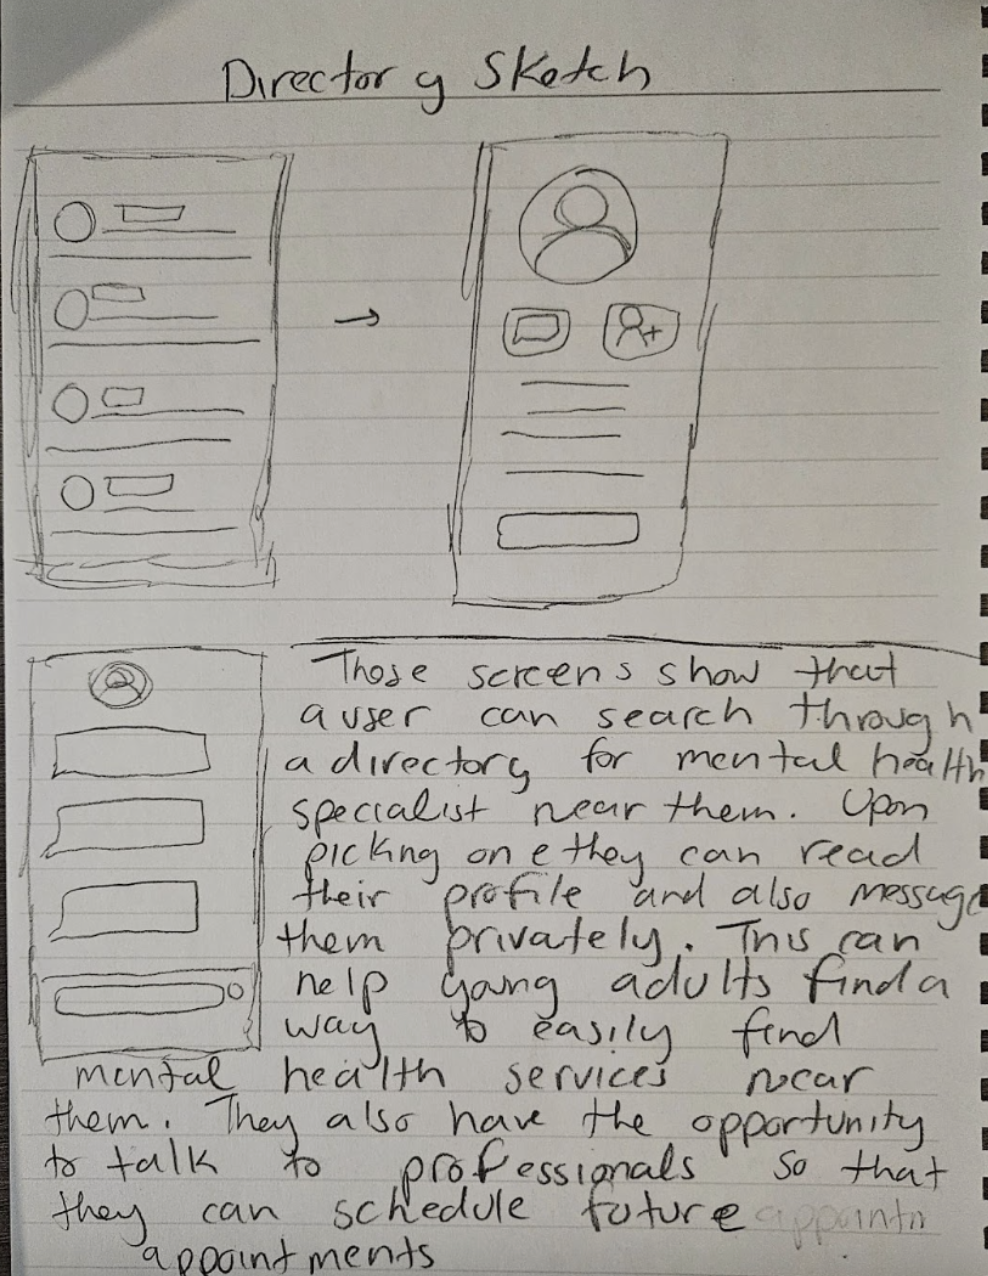 Directory Sketch
These screens show that
a user can search through
a directory for mental health
specialist near them. Upon
picking one they can read
their profile and also message
them privately. This can
help young adults find a
way to easily find
mental health services near
them. They also have the opportunity
to talk to professionals so that
they can schedule future appointm
appointments